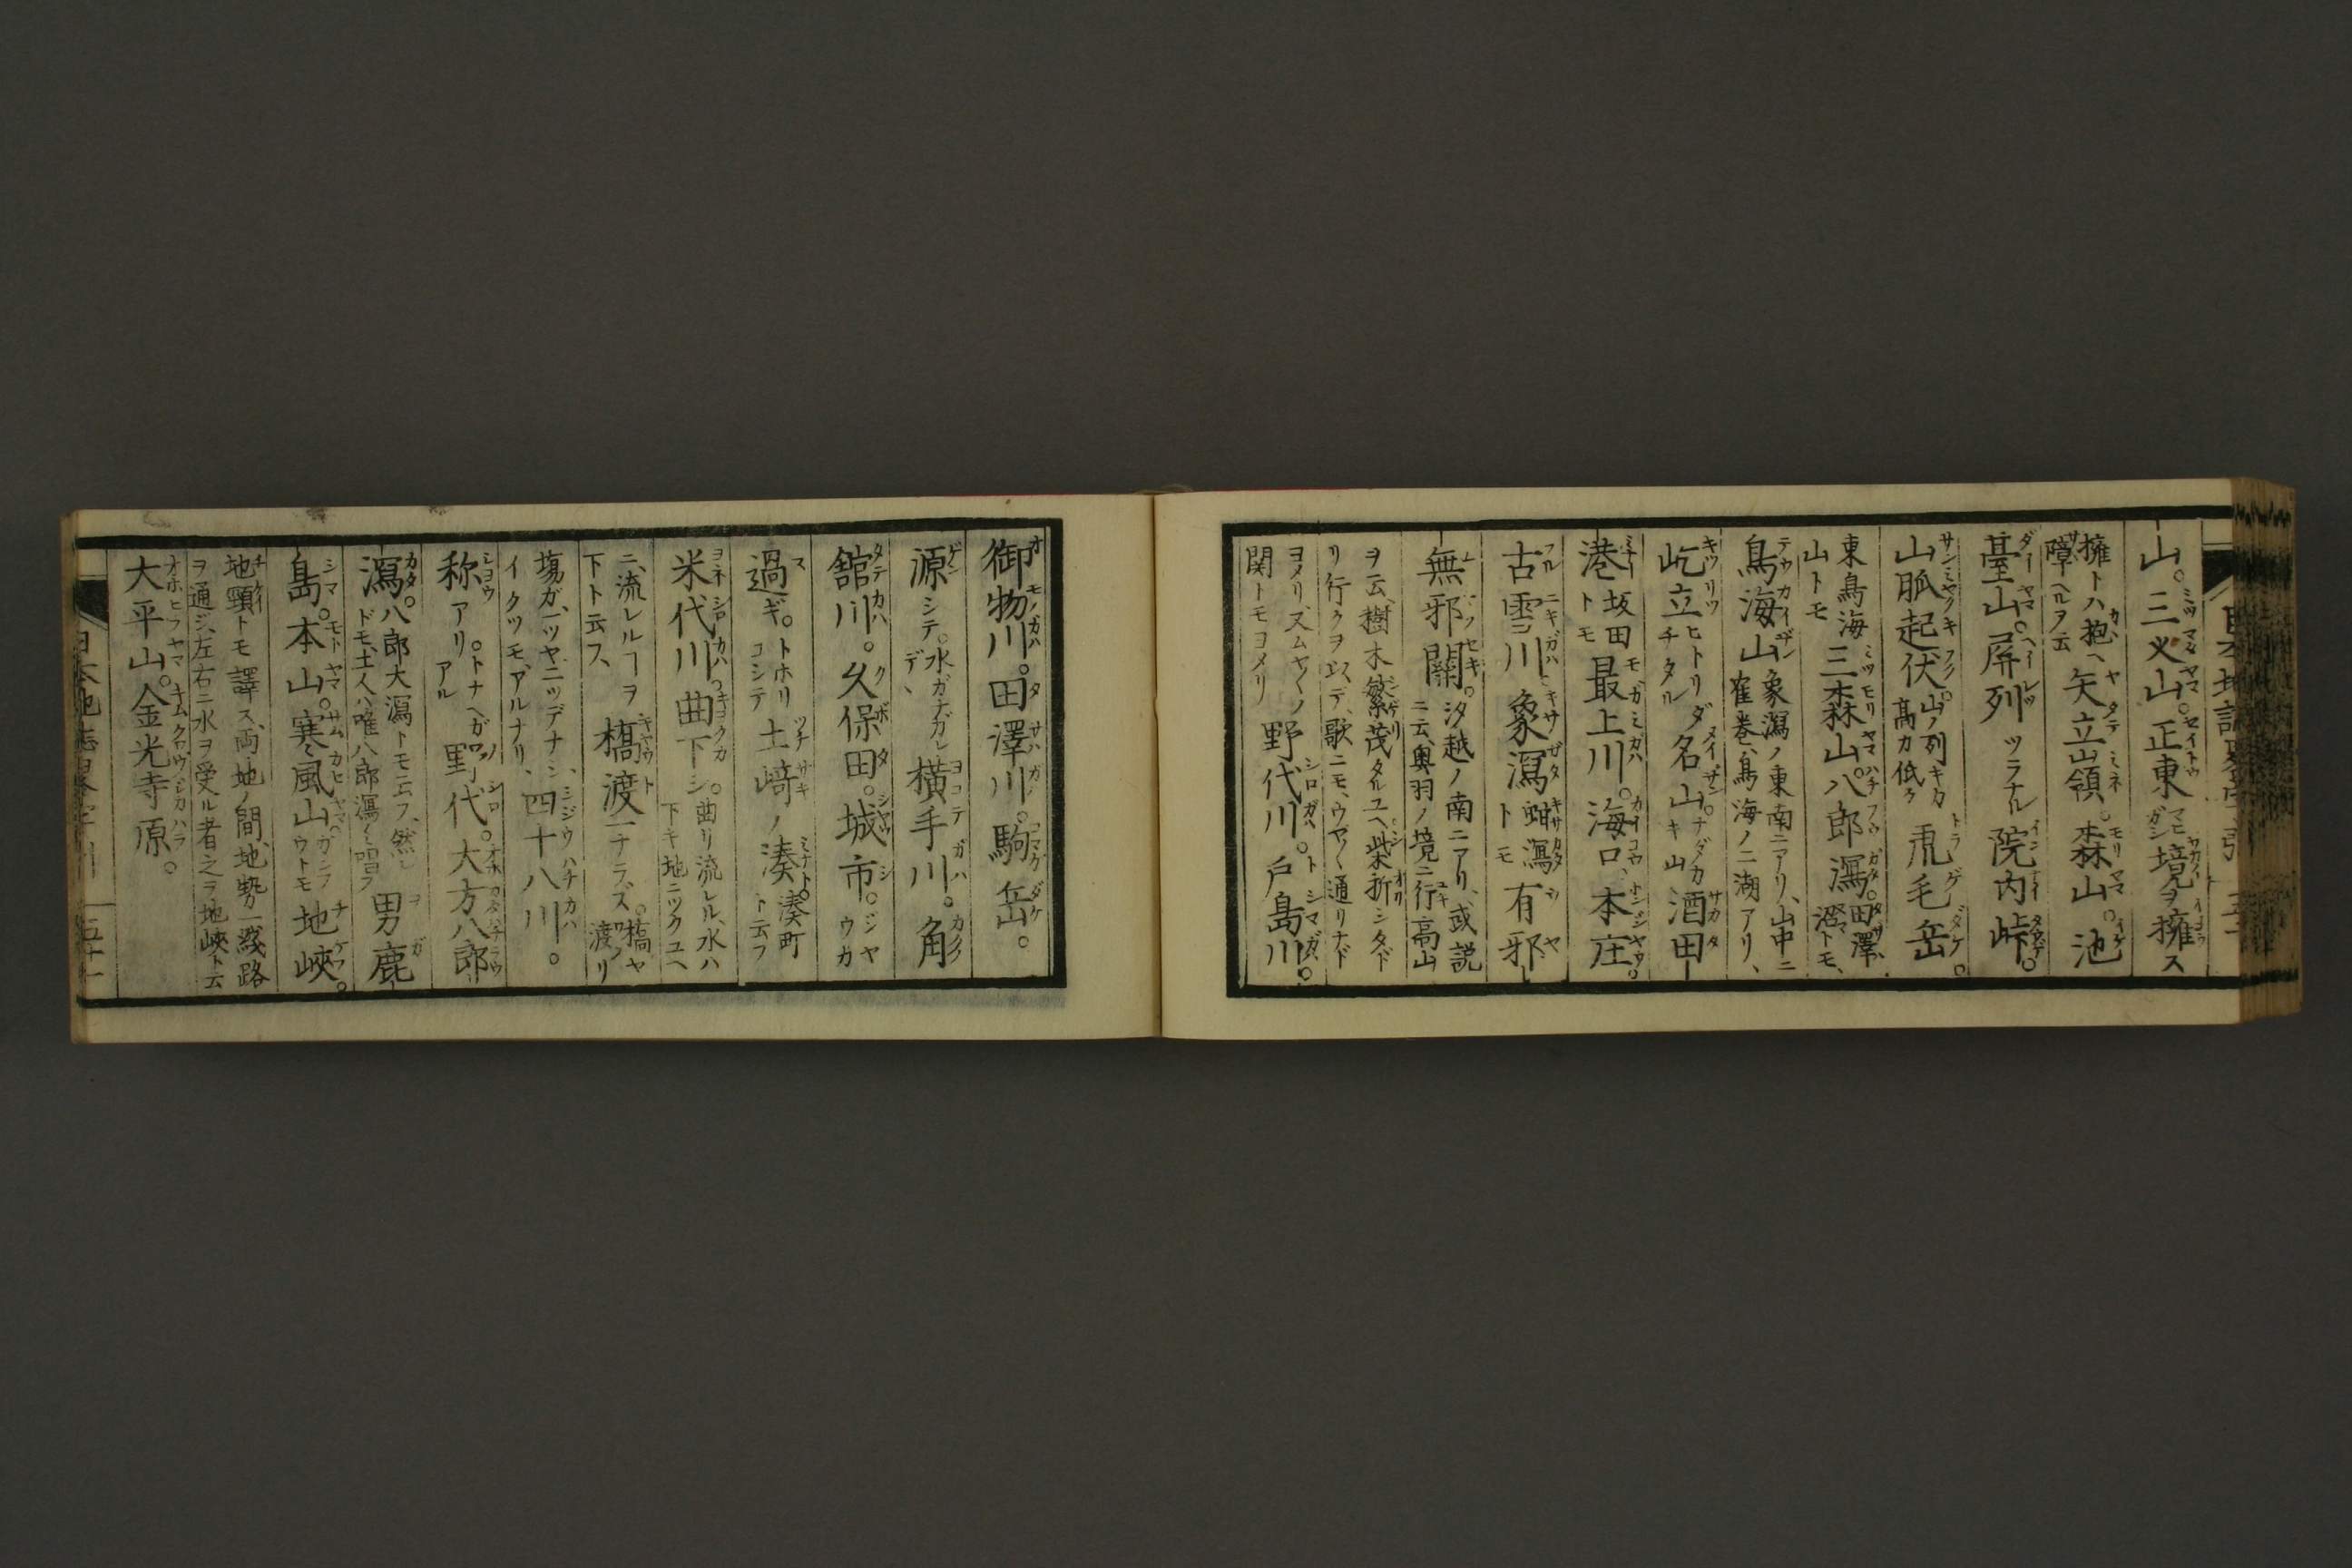 山。三叉山。正東マヒガシ境ヲ擁ス
擁トハ抱ヘ障ヘルヲ云矢立嶺。森山。池
臺山。屏列ツラナル院内峠。
山脈起伏山ノ列キカ髙カ低ク乕毛岳。
東鳥海山トモ三森山。八郎瀉。田澤沼トモ、
鳥海山象瀉ノ東南ニアリ、山中ニ隺巻鳥海ノ二湖アリ、
屹立ヒトリダチタル名山。ナダカキ山酒田
港坂田トモ最上川。海口、本庄。
古雪川象瀉蚶瀉トモ有邪
無邪關。汐越ノ南ニアリ、或説ニ云奥羽ノ境ニ行高山
ヲ云、樹木繁茂タルユヘ、柴折シタドリ行クヲ以デ、歌ニモ、ウヤ〳〵通リナド
ヨメリ又ムヤ〳〵ノ関トモヨメリ野代川。戸島川。
御物川。田澤川。駒岳。
源シテ。水ガナガレデ、横手川。角
舘川。久保田。城市。ジヤウカ
過ギ。トホリコシテ土﨑ノ湊。湊町ト云フ
米代川。曲下シ。曲リ流レル、水ハ下キ地ニツクユヘ
ニ、流レルヿヲ下ト云フ、橋渡一ナラズ。橋ヤ渡リ
場ガ、一ツヤ二ツデナシ、イクツモ、アルナリ、四十八川。
称アリ。トナヘガアル野代。大方八郎
瀉。八郎大瀉トモ云フ、然レドモ、土人ハ唯八郎瀉ト唱フ男鹿
島。本山。寒風山。地峡。
地頸トモ譯ス、両地ノ間、地勢一綫路ヲ通ジ、左右ニ水ヲ受ル者之ヲ地峡ト云
大平山。金光寺原。